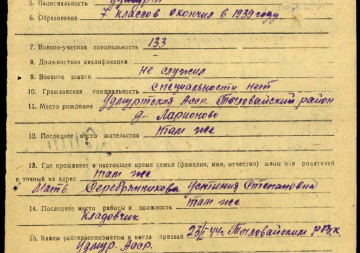 5. Национальность удмурт
6. Образование 7 классов окончил в 1939 году
7. Военно-учетная специальность 133
8. Должностная квалификация
9. Военное звание не служил
10. Гражданская специальность специальности нет
11. Место рождения Удмуртская Асср. Тыловайский район
д- Ларионово
12. Последнее место жительства там же
13. Где проживает в настоящее время семья (фамилия, имя, отчество) жены или родителей
и точный их адрес там же
Мать Серебрянникова Устиния Степановна
там же
14. Последнее место работы и должность
Кладовщик
15. Каким райгорвоенкоматом и когда призван Тыловайским РВк
Удмур. Асср.